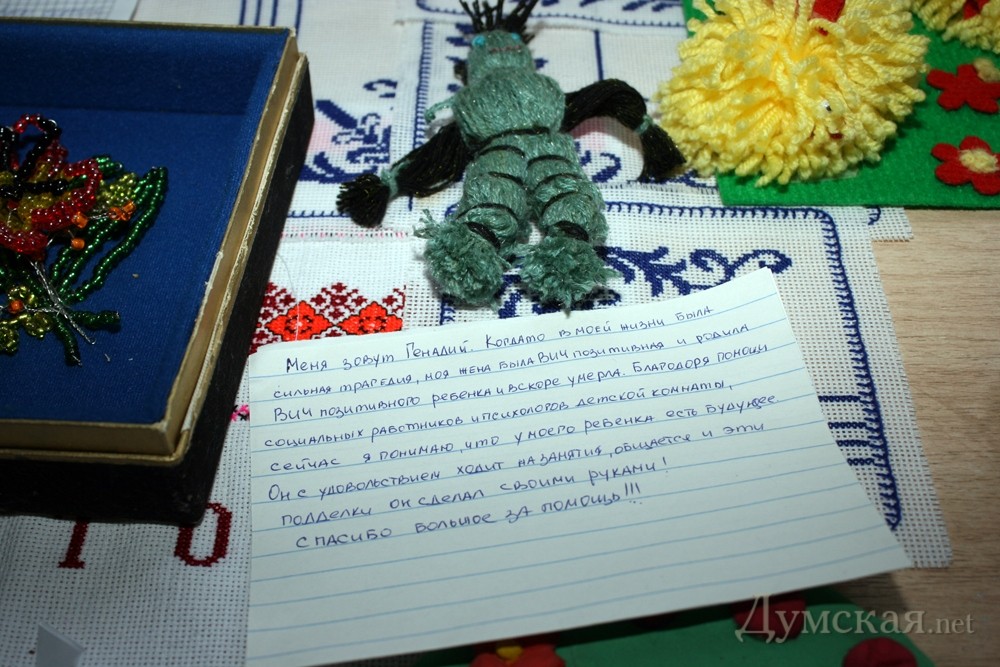 Меня зовут Генадий. Когдато в моей жизни была
сильная трагедия, моя жена была ВИЧ позитивная и родила
ВИЧ позитивного ребенка и вскоре умерла. Благодоря помощи
социальных работников и психолоров детской комнаты,
сейчас я понимаю, что у моего ребенка есть будущее
Он с удовольствием ходит на занятия, общается и эти
подделки он сделал своими руками!
спасибо большое за помощь!!!
Думская.net